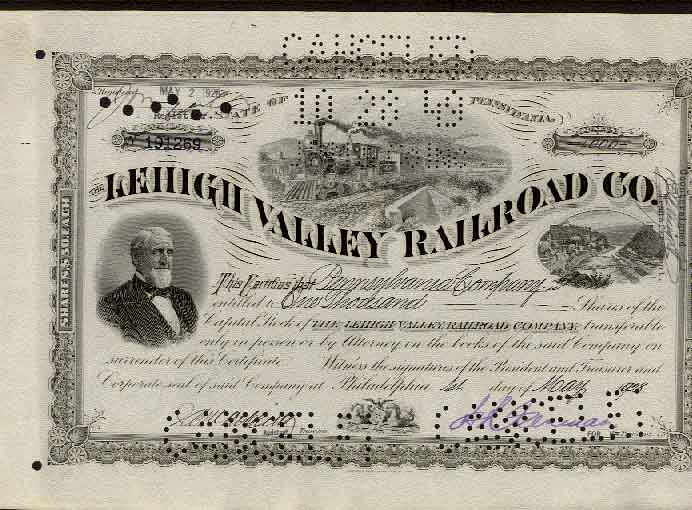 CANCELLED
MAY 2 1928
Registrar.
STATE OF PENNSYLVANIA.
191269
THE LEHIGH VALLEY RAILROAD CO.
SHARES $50 EACH
This Certifies that Pennsylvania Company
entitled to One Thousand Shares of the
Capital Stock of THE LEHIGH VALLEY RAILROAD COMPANY, transferable
only in person or by Attorney on the books of the said Company on
surrender of this Certificate. Witness the signatures of the President and Treasurer and
Corporate seal of said Company at Philadelphia 1st day of May 1928
CANCELLED